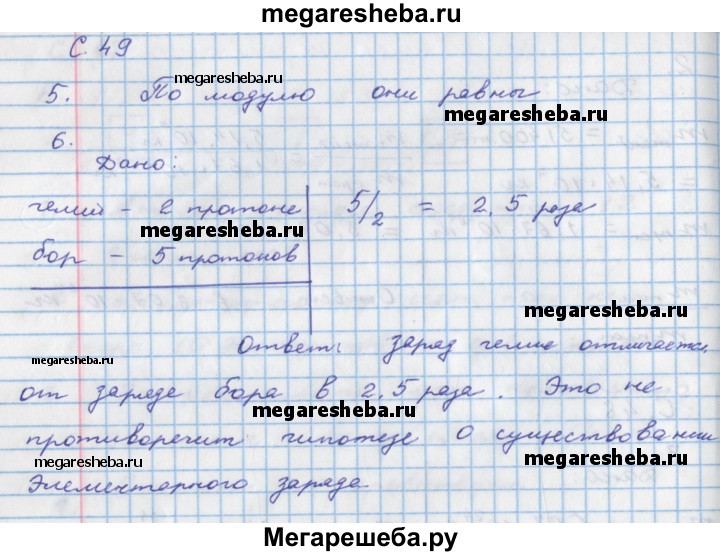 megaresheba.ru
С. 49
megaresheba.ru
5. По модулю они равны
megaresheba.ru
6.
Дано:
гелий - 2 протона 5/2 = 2,5 раза
megaresheba.ru
бор - 5 протонов
megaresheba.ru
Ответ: заряд гелия отличается
megaresheba.ru
от заряда бора в 2,5 раза. Это не
megaresheba.ru
противоречит гипотезе о существовании
megaresheba.ru
megaresheba.ru
Элементарного заряда
Мегарешеба.ру